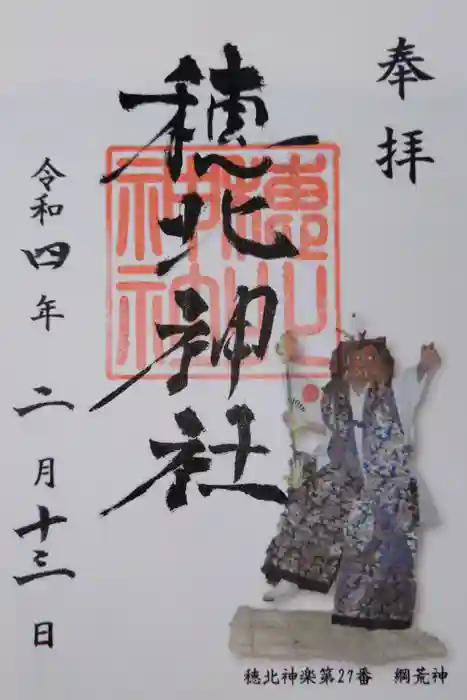 奉拝
穂北神社
令和四年 二月十三日
穂北神楽第27番 綱荒神